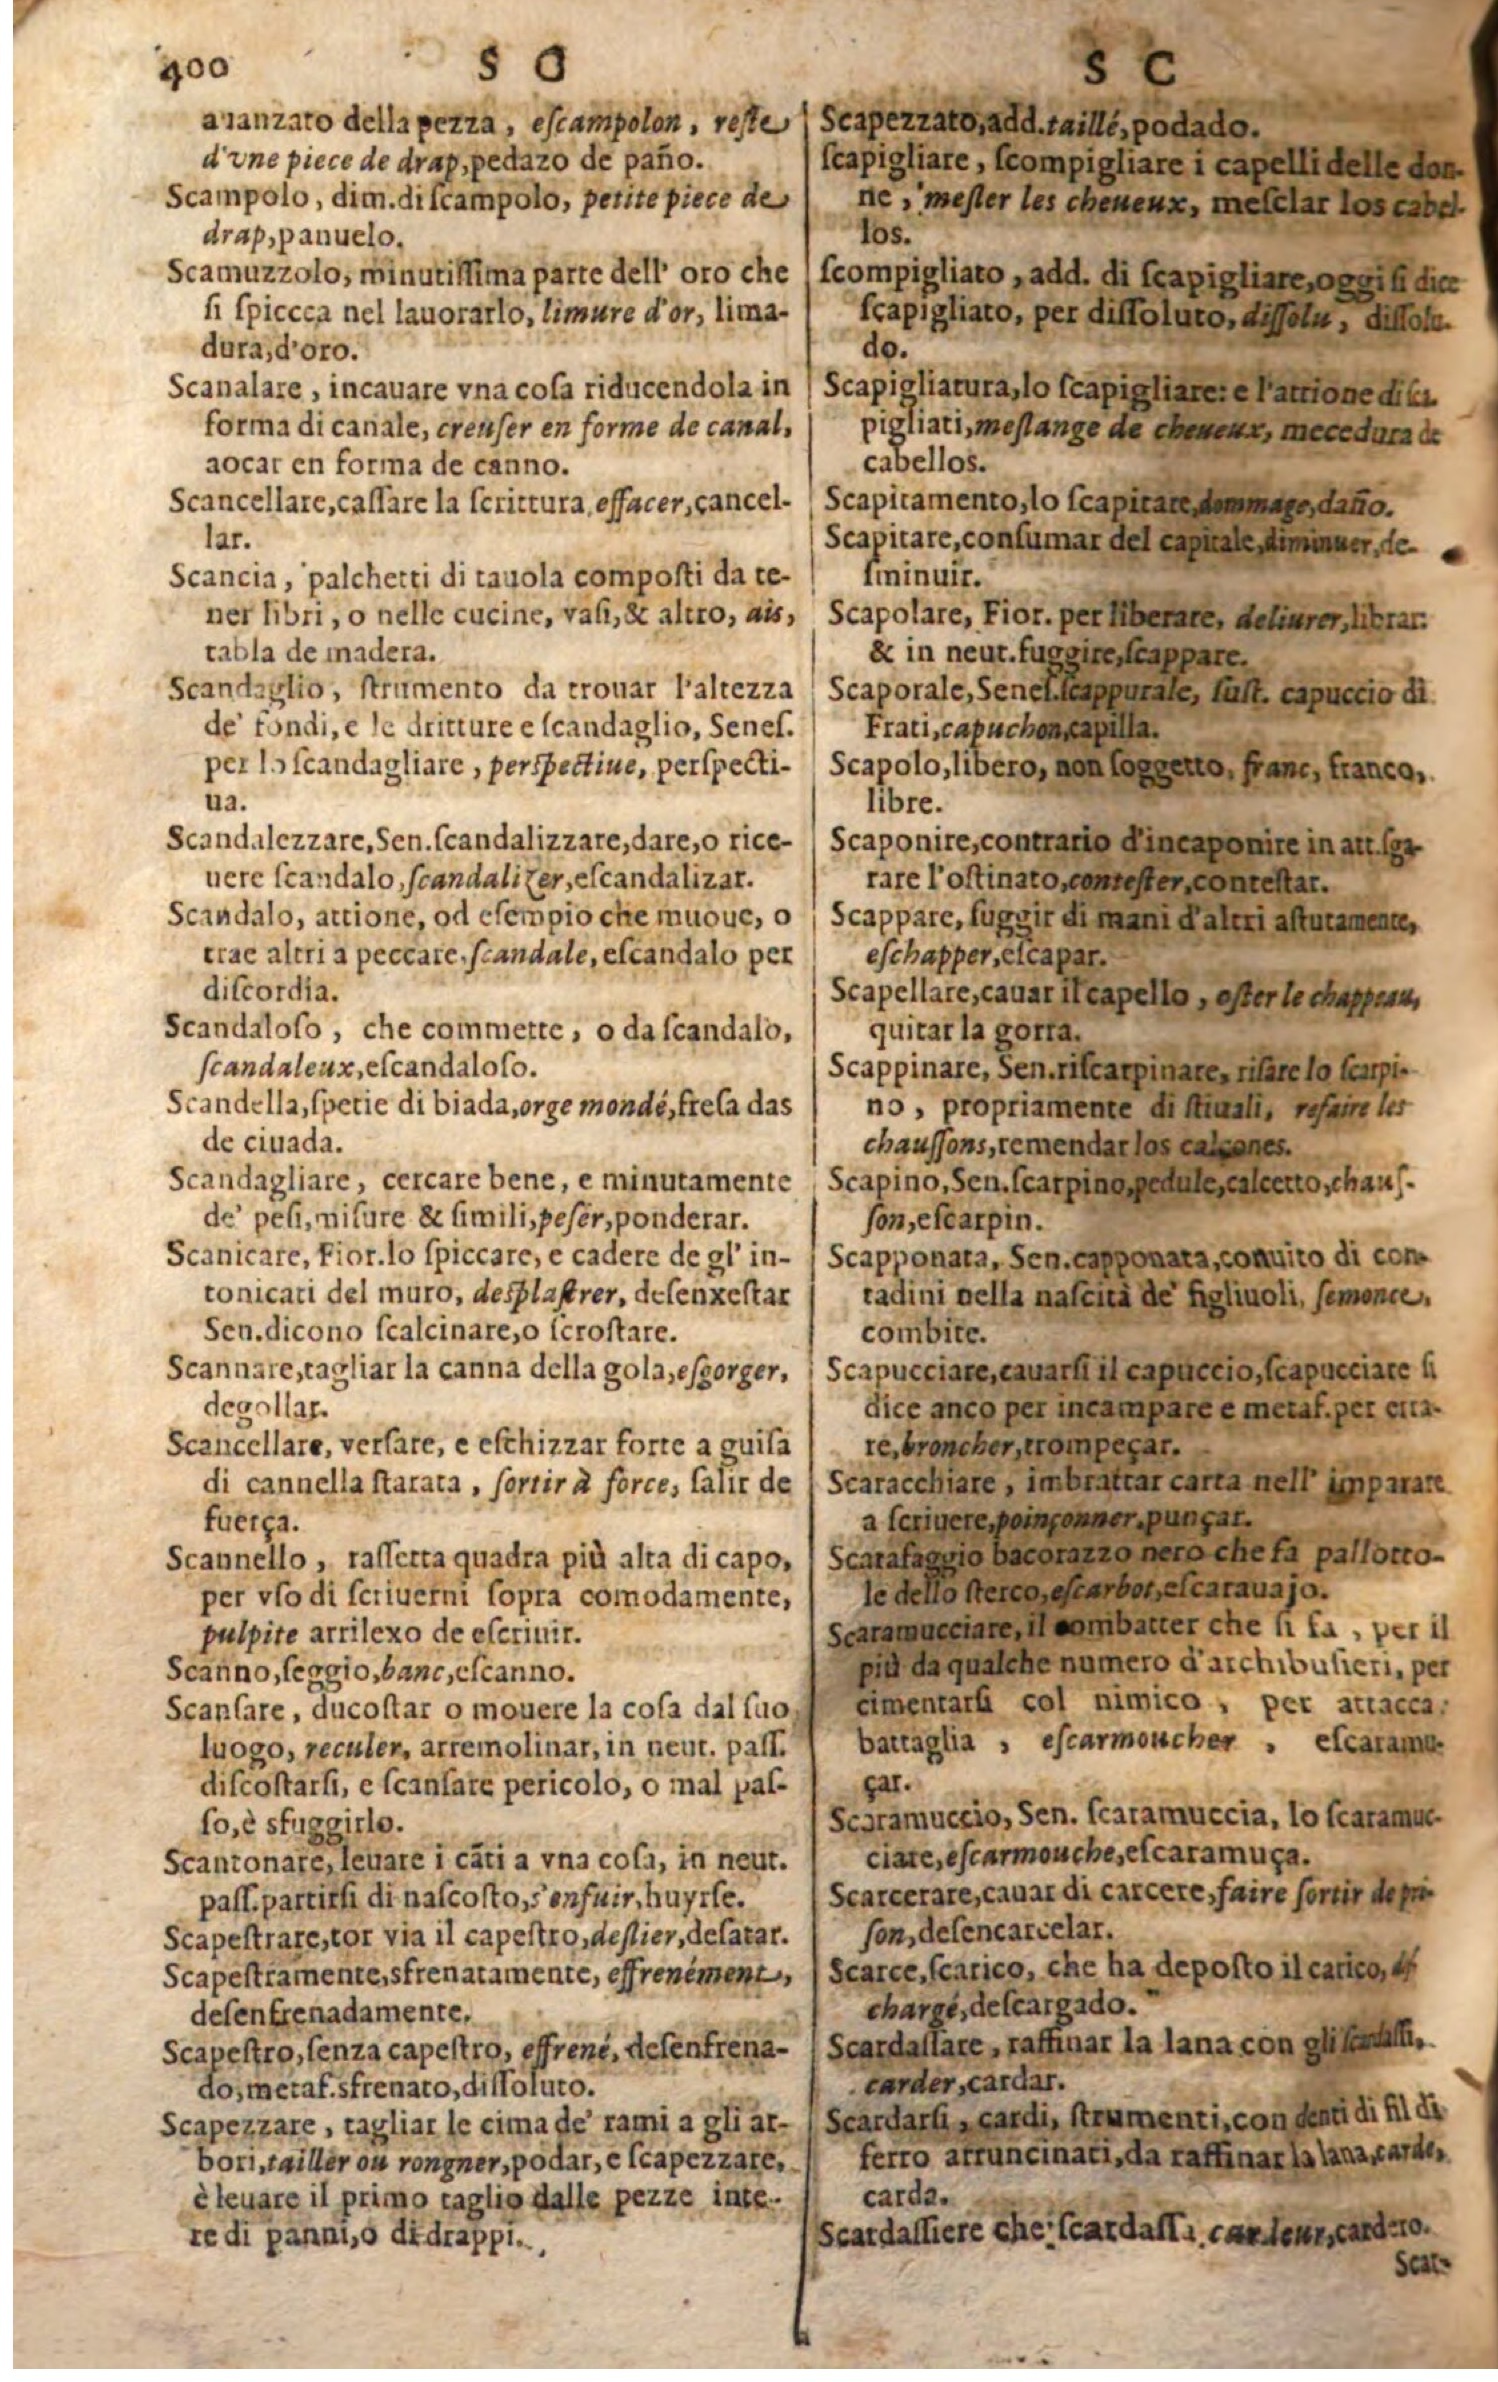 400 S O
auanzato della pezza, eſcampolon, reſte
d'vne piece de drap, pedazo de paño.
Scampolo, dim. di ſcampolo, petite piece de
drap, panuelo.
Scamuzzolo, minutiſſima parte dell' oro che
ſi ſpiccca nel lauorarlo, limure d'or, lima-
dura, d'oro.
Scanalare, incauare vna coſa riducendola in
forma di canale, creuſer en forme de canal,
aocar en forma de canno.
Scancellare, caſſare la ſcrittura, effacer, cancel-
lar.
Scancia, palchetti di tauola compoſti da te-
ner libri, o nelle cucine, vaſi, & altro, ais,
tabla de madera.
Scandaglio, ſtrumento da trouar l'altezza
de' fondi, e le dritture e ſcandaglio, Seneſ.
per lo ſcandagliare, perſpectiue, perſpecti-
ua.
Scandalezzare, Sen. ſcandalizzare, dare, o rice-
uere ſcandalo, ſcandalizer, eſcandalizar.
Scandalo, attione, od eſempio che muoue, o
trae altri a peccare, ſcandale, eſcandalo per
diſcordia.
Scandaloſo, che commette, o da ſcandalo,
ſcandaleux, eſcandaloſo.
Scandella, ſpetie di biada, orge mondé, freſa das
de ciuada.
Scandagliare, cercare bene, e minutamente
de' peſi, miſure & ſimili, peſer, ponderar.
Scanicare, Fior. lo ſpiccare, e cadere de gl' in-
tonicati del muro, deſplaſtrer, deſenxeſtar
Sen. dicono ſcalcinare, o ſcroſtare.
Scannare, tagliar la canna della gola, eſgorger,
degollar.
Scancellare, verſare, e eſchizzar forte a guiſa
di cannella ſtarata, ſortir à force, ſalir de
fuerça.
Scannello, raſſetta quadra più alta di capo,
per vſo di ſcriuerni ſopra comodamente,
pulpite arrilexo de eſcriuir.
Scanno, ſeggio, banc, eſcanno.
Scanſare, ducoſtar o mouere la coſa dal ſuo
luogo, reculer, arremolinar, in neut. paſſ.
diſcoſtarſi, e ſcanſare pericolo, o mal paſ-
ſo, è sfuggirlo.
Scantonare, leuare i cãti a vna coſa, in neut.
paſſ. partirſi di naſcoſto, s'enfuir, huyrſe.
Scapeſtrare, tor via il capeſtro, deſlier, deſatar.
Scapeſtramente, sfrenatamente, effrenément,
deſenfrenadamente.
Scapeſtro, ſenza capeſtro, effrené, deſenfrena-
do, metaf. sfrenato, diſſoluto.
Scapezzare, tagliar le cima de' rami a gli ar-
bori, tailler ou rongner, podar, e ſcapezzare,
è leuare il primo taglio dalle pezze inte-
re di panni, o di drappi.
S C
Scapezzato, add. taillé, podado.
ſcapigliare, ſcompigliare i capelli delle don-
ne, meſler les cheueux, meſclar los cabel-
los.
ſcompigliato, add. di ſcapigliare, oggi ſi dice
ſcapigliato, per diſſoluto, diſſolu, diſſolu-
do.
Scapigliatura, lo ſcapigliare: e l'attione di ſca
pigliati, meſlange de cheueux, mecedura de
cabellos.
Scapitamento, lo ſcapitare, dommage, daño.
Scapitare, conſumar del capitale, diminuer, de-
ſminuir.
Scapolare, Fior. per liberare, deliurer, librar.
& in neut. fuggire, ſcappare.
Scaporale, Seneſ. ſcappurale, ſuſt. capuccio di
Frati, capuchon, capilla.
Scapolo, libero, non ſoggetto, franc, franco,
libre.
Scaponire, contrario d'incaponire in att. ſga-
rare l'oſtinato, conteſter, conteſtar.
Scappare, fuggir di mani d'altri aſtutamente,
eſchapper, eſcapar.
Scapellare, cauar il capello, oſter le chappeau,
quitar la gorra.
Scappinare, Sen. riſcarpinare, rifare lo ſcarpi-
no, propriamente di ſtiuali, refaire les
chauſſons, remendar los calçones.
Scapino, Sen. ſcarpino, pedule, calcetto, chauſ-
ſon, eſcarpin.
Scapponata, Sen. capponata, conuito di con-
tadini nella naſcità de' figliuoli, ſemonce,
combite.
Scapucciare, cauarſi il capuccio, ſcapucciare ſi
dice anco per incampare e metaf. per erra-
re, broncher, trompeçar.
Scaracchiare, imbrattar carta nell' imparare
a ſcriuere, poinçonner, punçar.
Scarafaggio bacorazzo nero che fa pallotto-
le dello ſterco, eſcarbot, eſcarauajo.
Scaramucciare, il combatter che ſi fa, per il
più da qualche numero d'archibuſieri, per
cimentarſi col nimico, per attacca:
battaglia, eſcarmoucher, eſcaramu-
çar.
Scaramuccio, Sen. ſcaramuccia, lo ſcaramuc-
ciare, eſcarmouche, eſcaramuça.
Scarcerare, cauar di carcere, faire ſortir de pri-
ſon, deſencarcelar.
Scarce, ſcarico, che ha depoſto il carico,
chargé, deſcargado.
Scardaſſare, raffinar la lana con gli ſcardaſſi,
carder, cardar.
Scardarſi, cardi, ſtrumenti, con denti di fil di
ferro arruncinati, da raffinar la lana, carde,
carda.
Scardaſſiere che ſcardaſſa, cardeur, cardero.
Scar-